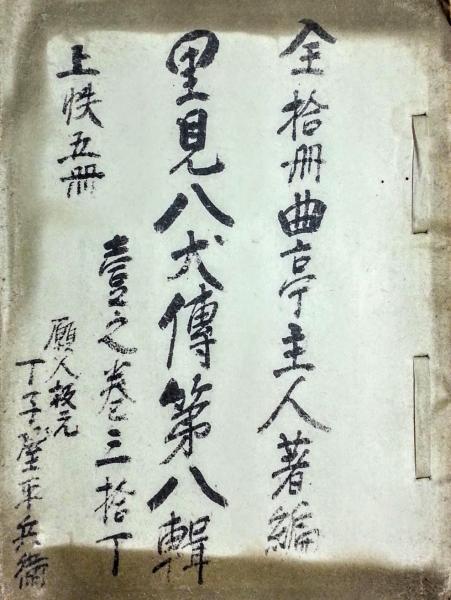 全拾冊曲亭主人著編
里見八犬傳第八輯
壹之巻三拾丁
上帙五冊
願人板元
丁子屋平兵衛